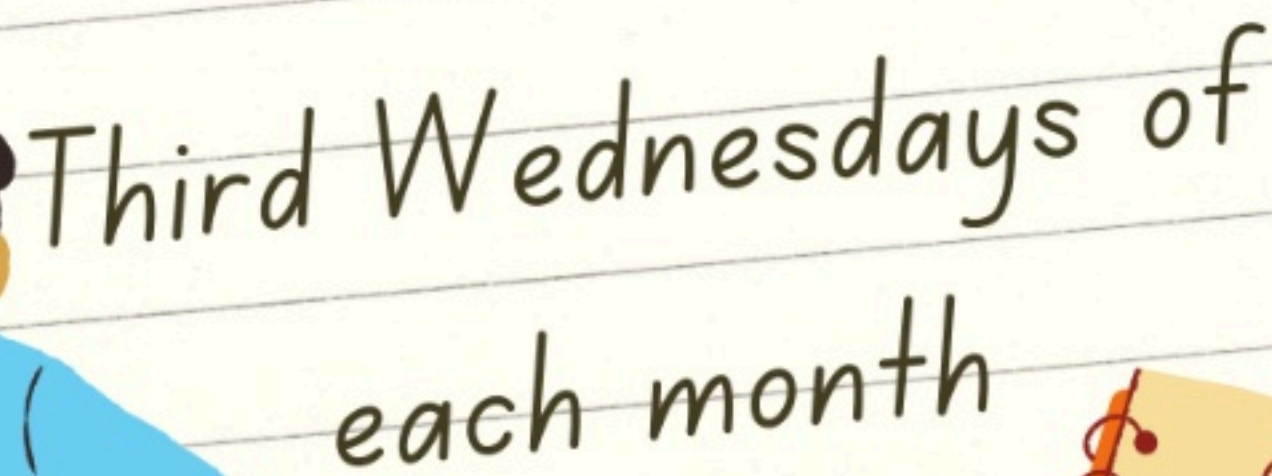 Third Wednesdays of
each month